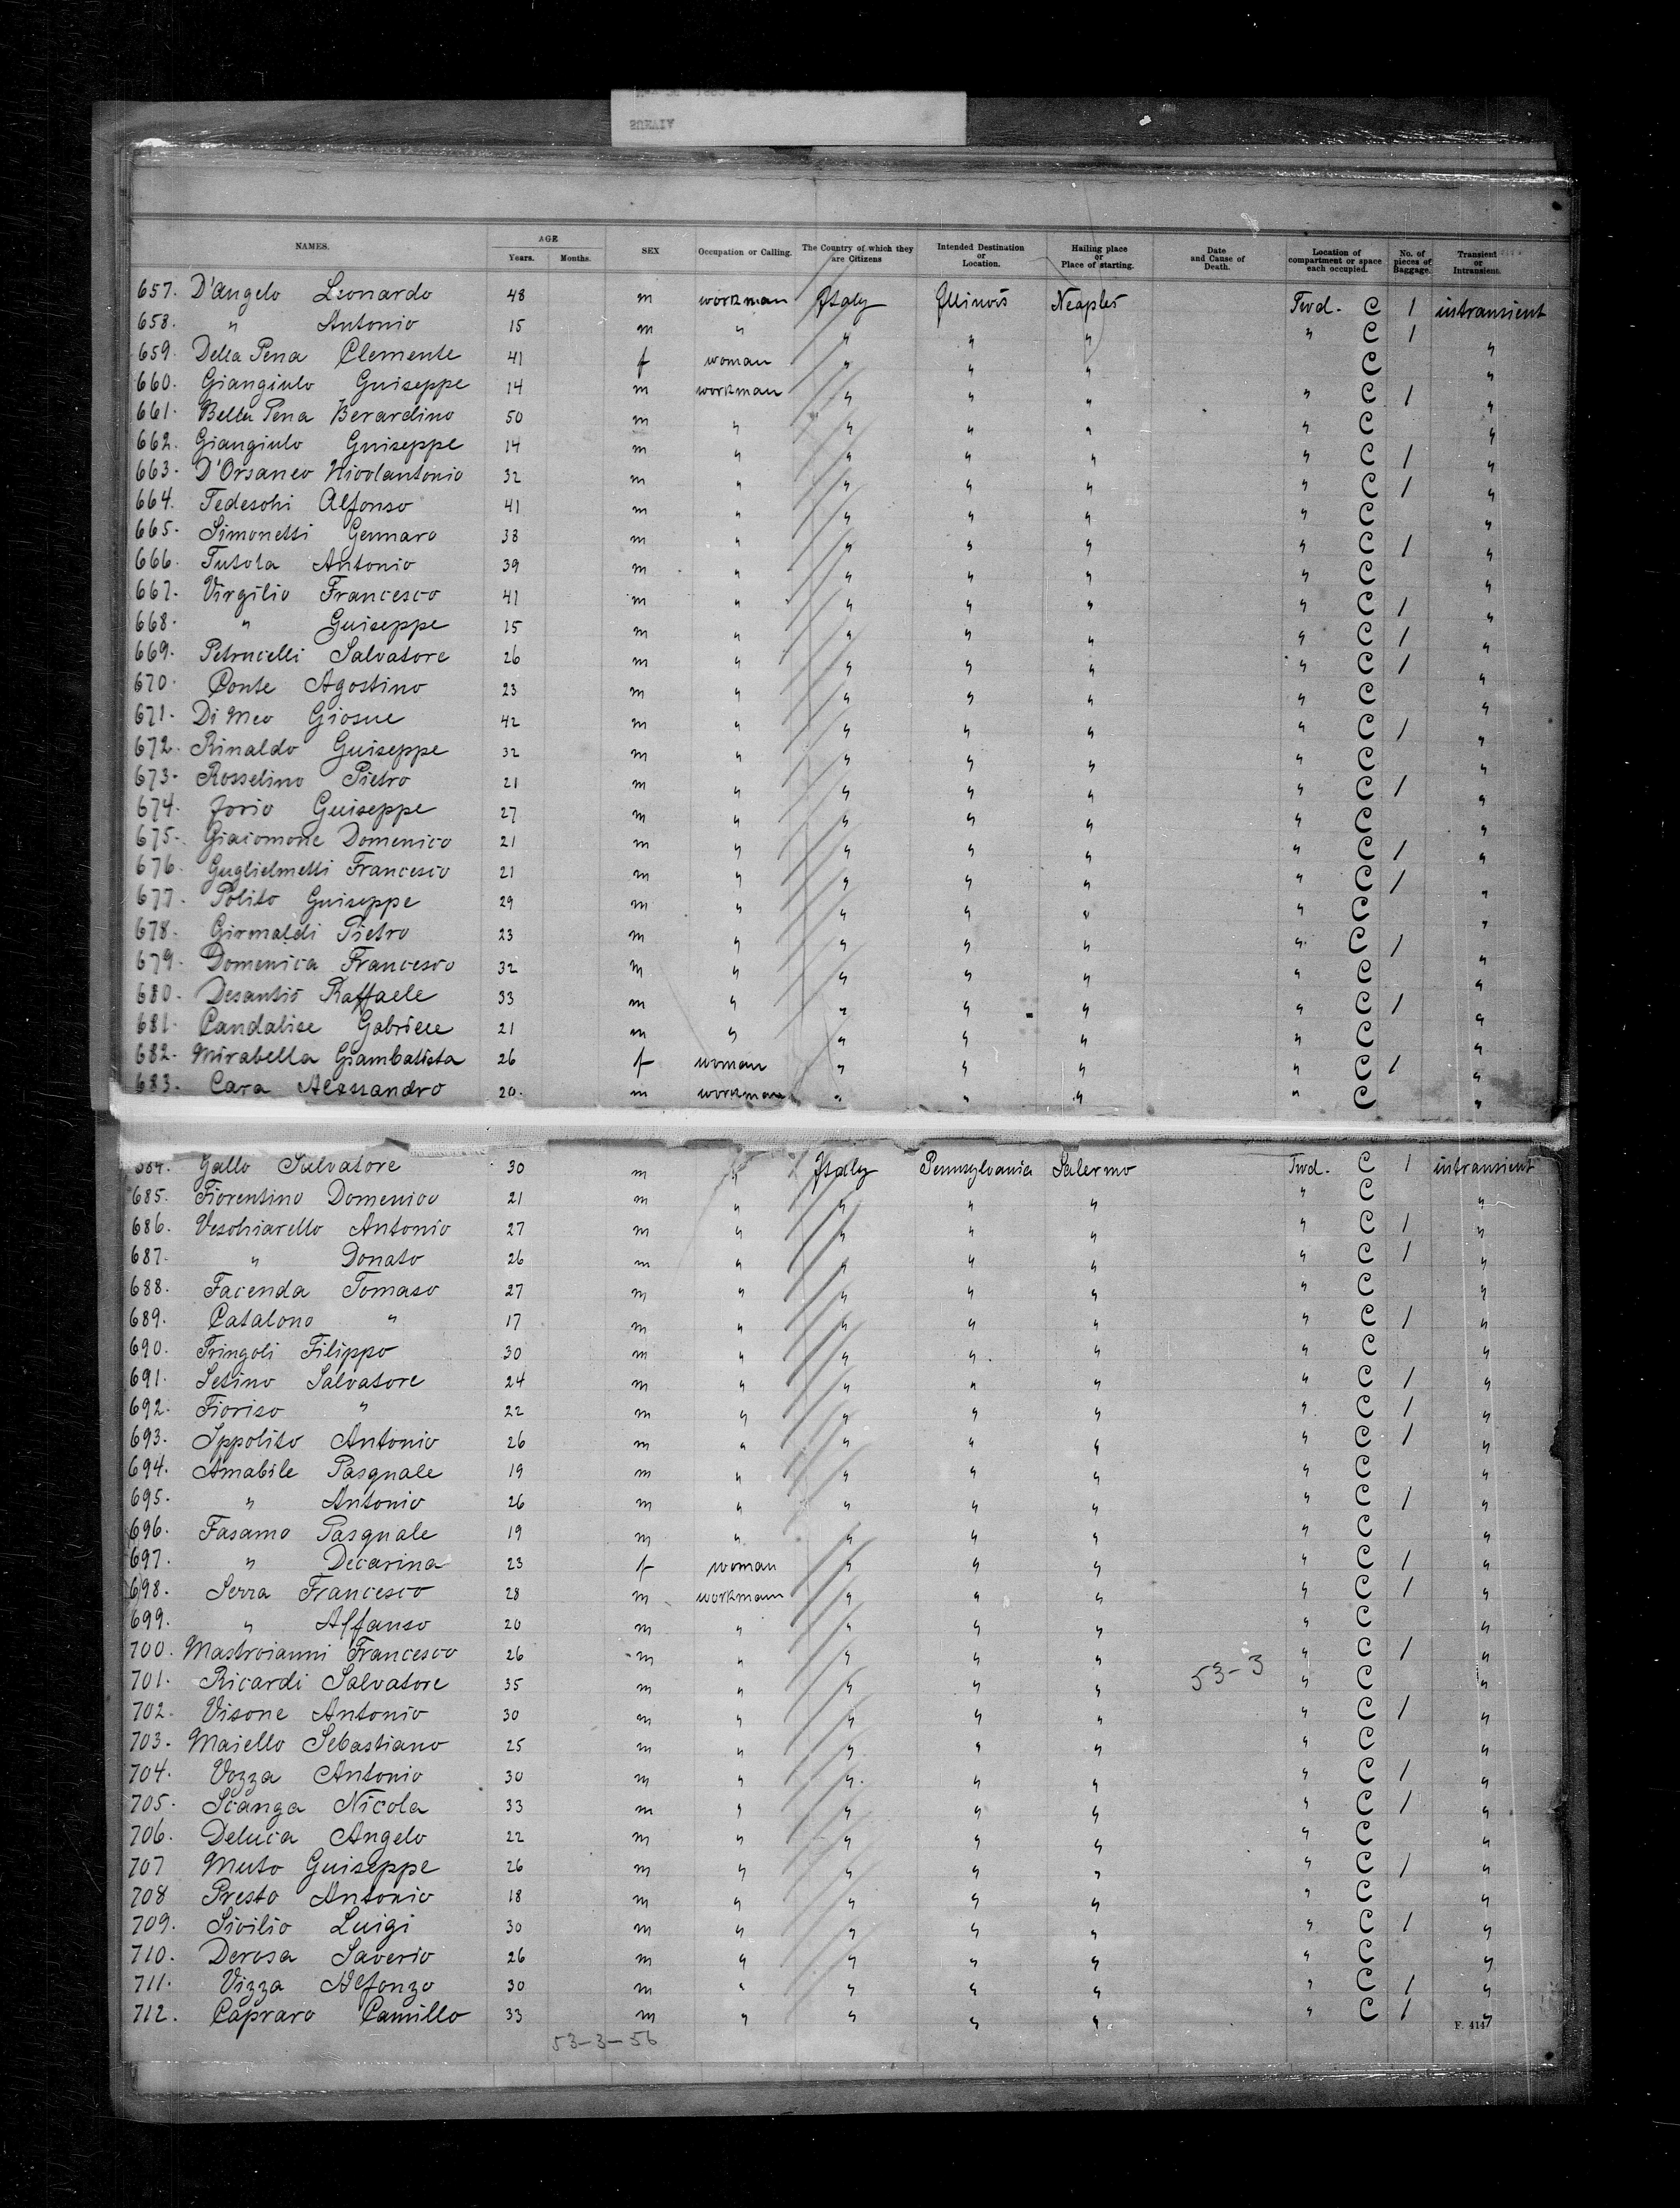 NAMES. AGE Years. Months. SEX Occupation or Calling. The Country of which they are Citizens Intended Destination or Location. Hailing place or Place of starting. Date and Cause of Death. Location of compartment or space each occupied. No. of pieces of Baggage. Transient or Intransient.
657. D'Angelo Leonardo 48 m workman Italy Illinois Neaples Fwd. C 1 intransient
658. " Antonio 15 m " " " " " C 1 "
659. Della Pena Clemente 41 f woman " " " C "
660. Giangiulo Guiseppe 14 m workman " " " " C 1 "
661. Bella Pena Berardino 50 m " " " " " C "
662. Giangiulo Guiseppe 14 m " " " " " C 1 "
663. D'Orsaneo Nicolantonio 32 m " " " " " C 1 "
664. Tedeschi Alfonso 41 m " " " " " C "
665. Simonetti Gennaro 38 m " " " " " C 1 "
666. Tutola Antonio 39 m " " " " " C "
667. Virgilio Francesco 41 m " " " " " C 1 "
668. " Guiseppe 15 m " " " " " C 1 "
669. Petrucelli Salvatore 26 m " " " " " C 1 "
670. Conte Agostino 23 m " " " " " C "
671. Di Meo Giosue 42 m " " " " " C 1 "
672. Rinaldo Guiseppe 32 m " " " " " C "
673. Rosselino Pietro 21 m " " " " " C 1 "
674. Jorio Guiseppe 27 m " " " " " C "
675. Giacomone Domenico 21 m " " " " " C 1 "
676. Guglielmetti Francesco 21 m " " " " " C 1 "
677. Polito Guiseppe 29 m " " " " " C "
678. Girmaldi Pietro 23 m " " " " " C 1 "
679. Domenica Francesco 32 m " " " " " C "
680. Desantis Raffaele 33 m " " " " " C 1 "
681. Candalise Gabriele 21 m " " " " " C "
682. Mirabella Giambatista 26 f woman " " " " C 1 "
683. Cara Alessandro 20. m workman " " " " C "
684. Gallo Salvatore 30 m " Italy Pennsylvania Salermo Fwd. C 1 intransient
685. Fiorentino Domenico 21 m " " " " " C "
686. Veschiarello Antonio 27 m " " " " " C 1 "
687. " Donato 26 m " " " " " C 1 "
688. Facenda Tomaso 27 m " " " " " C "
689. Catalono " 17 m " " " " " C 1 "
690. Tringoli Filippo 30 m " " " " " C "
691. Setino Salvatore 24 m " " " " " C 1 "
692. Fioriso " 22 m " " " " " C 1 "
693. Ippolito Antonio 26 m " " " " " C 1 "
694. Amabile Pasquale 19 m " " " " " C "
695. " Antonio 26 m " " " " " C 1 "
696. Fasamo Pasquale 19 m " " " " " C "
697. " Decarina 23 f woman " " " " C 1 "
698. Serra Francesco 28 m workman " " " " C 1 "
699. " Alfanso 20 m " " " " " C "
700. Mastroianni Francesco 26 m " " " " " C 1 "
701. Ricardi Salvatore 35 m " " " " 53-3 " C "
702. Visone Antonio 30 m " " " " " C 1 "
703. Maiello Sebastiano 25 m " " " " " C "
704. Vozza Antonio 30 m " " " " " C 1 "
705. Scanga Nicola 33 m " " " " " C 1 "
706. Deluca Angelo 22 m " " " " " C "
707 Muto Guiseppe 26 m " " " " " C 1 "
708 Presto Antonio 18 m " " " " " C "
709. Sivilio Luigi 30 m " " " " " C 1 "
710. Derosa Saverio 26 m " " " " " C "
711. Vizza Alfonzo 30 m " " " " " C 1 "
712. Capraro Camillo 33 m " " " " " C 1 "
F. 414
53-3-56